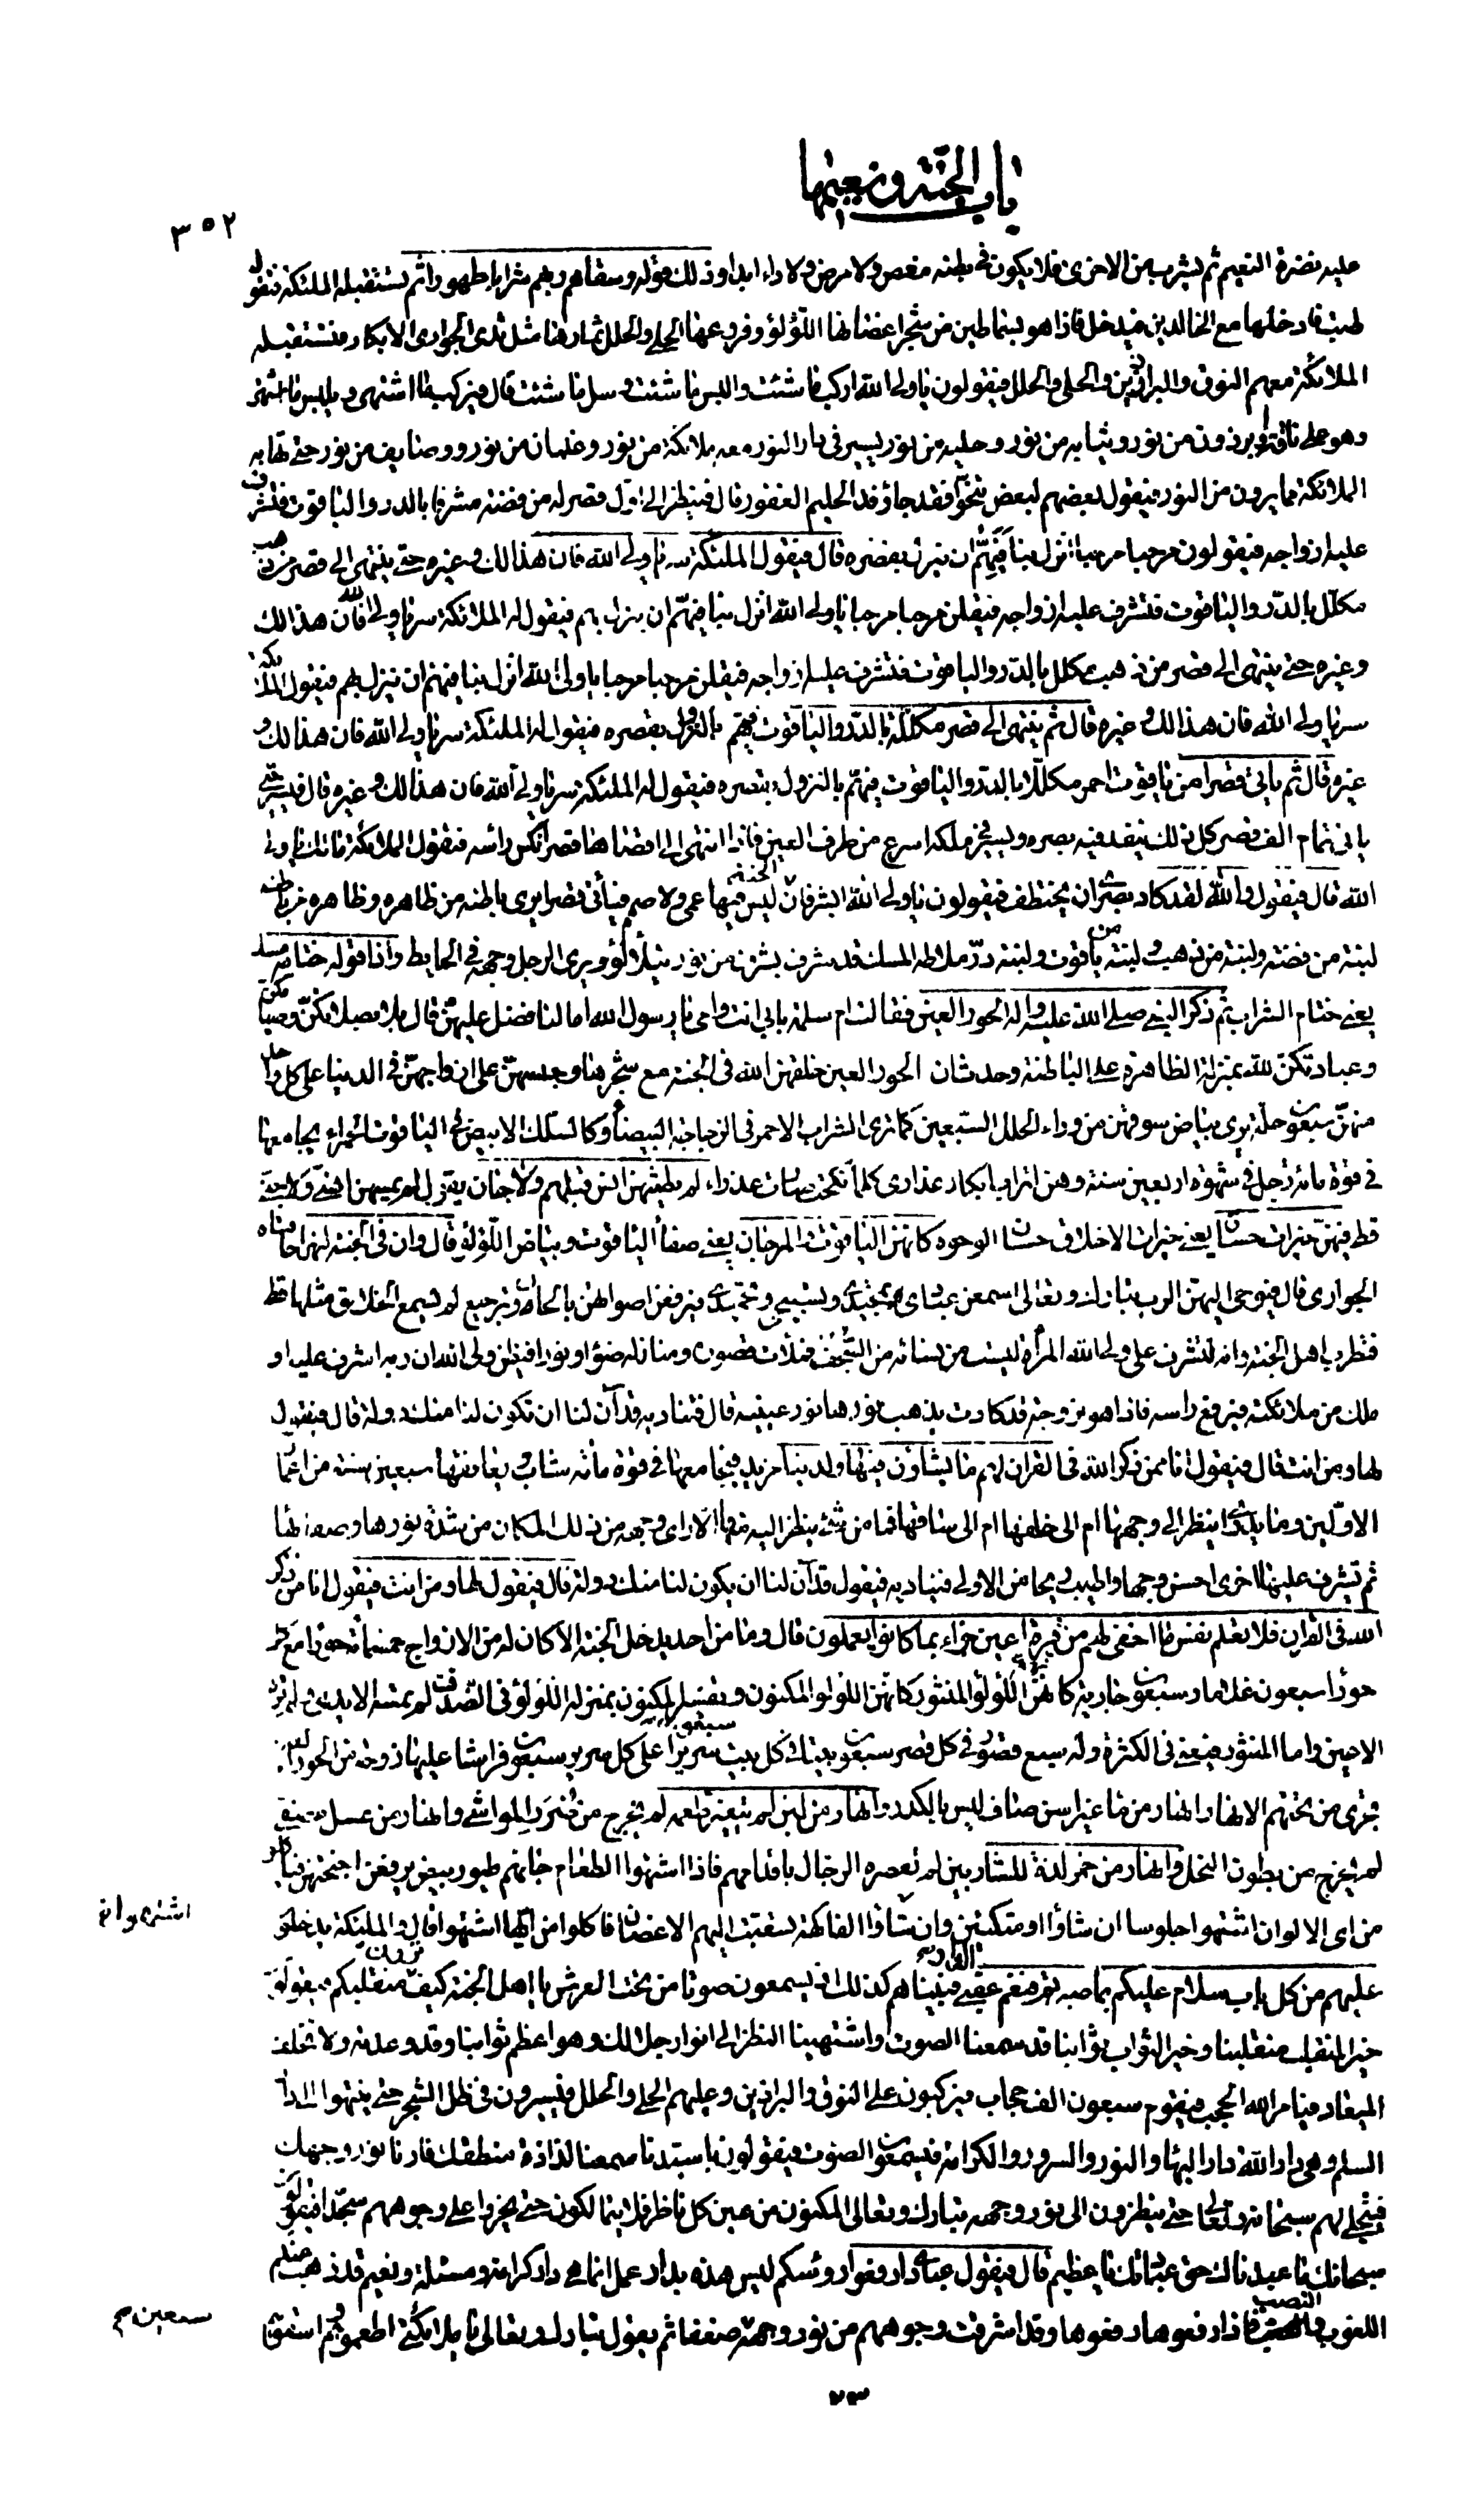 باب الجنة ونعيمها
٣٥٢
عليه نضرة النعيم ثم يشرب من الاخرى فلا يكون في بطنه مغص ولا مرض ولا داء ابدا وذلك قوله وسقاهم ربهم شرابا طهورا ثم تستقبله الملئكة فتقول له
طبت فادخلها مع الخالدين فيدخل فاذا هو بسماطين من شجر اغصانها اللؤلؤ وفروعها الحلي والحلل ثمارها مثل ثدى الجوارى الابكار فتستقبله
الملائكة معهم النوق والبراذين والحلي والحلل فيقولون يا ولى الله اركب ما شئت والبس ما شئت وسل ما شئت قال فيركب ما اشتهى ويلبس ما اشتهى
وهو على ناقة او برذون من نور وثيابه من نور وحليه من نور يسير في دار النور معه ملائكة من نور وغلمان من نور ووصايف من نور حتى تهابه
الملائكة مما يرون من النور فيقول بعضهم لبعض تنحوا فقد جاء وفد الحليم الغفور قال فينظر الى اول قصر له من فضة مشرفا بالدر والياقوت فتشرف
عليه ازواجه فيقولون مرحبا مرحبا انزل بنا فيهم ان ينزل بقصره قال فيقول الملئكة سر يا ولى الله فان هذا لك وغيره حتى ينتهى الى قصر من ذهب
مكلل بالدر والياقوت فتشرف عليه ازواجه فيقلن مرحبا مرحبا يا ولى الله انزل بنا فيهم ان ينزل بهم فيقول له الملائكة سر يا ولى الله فان هذا لك
وغيره حتى ينتهى الى قصر من ذهب مكلل بالدر والياقوت فتشرف عليه ازواجه فيقلن مرحبا مرحبا يا ولى الله انزل بنا فيهم ان ينزل بهم فيقول الملائكة
سر يا ولى الله فان هذا لك وغيره قال ثم ينتهى الى قصر مكللة بالدر والياقوت فيهم بالنزول بقصره فيقول له الملئكة سر يا ولى الله فان هذا لك و
غيره قال ثم يأتى قصرا من ياقوت احمر مكللا بالدر والياقوت فيهم بالنزول بقصره فيقول له الملئكة سر يا ولى الله فان هذا لك وغيره قال فيسير حتى
يأتى تمام الف قصر كل ذلك ينفد فيه بصره ويسير في ملكه اسرع من طرف العين فاذا انتهى الى اقصاها قصرا نكس رأسه فتقول الملائكة مالك يا ولى
الله قال فيقول والله لقد كاد بصرى ان يختطف فيقولون يا ولى الله ابشر فان الجنة ليس فيها عمى ولا صم فيأتى قصرا يرى باطنه من ظاهره وظاهره من باطنه
لبنة من فضة ولبنة من ذهب ولبنة من ياقوت ولبنة در ملاطه المسك قد شرف بشرف من نور يتلألؤ ويرى الرجل وجهه في الحايط وذا قوله ختامه مسك
يعنى ختام الشراب ثم ذكر النبى صلى الله عليه واله الحور العين فقالت ام سلمة بابى انت وامى يا رسول الله اما لنا فضل عليهن قال بلى بصلاتكن وصيامكن
وعبادتكن لله بمنزلة الظاهرة على الباطنة وحدث ان الحور العين خلقهن الله في الجنة مع شجرها وحبسهن على ازواجهن في الدنيا على كل واحدة
منهن سبعون حلة يرى بياض سوقهن من وراء الحلل السبعين كما ترى الشراب الاحمر في الزجاجة البيضاء وكالسلك الابيض في الياقوت الحمراء يجامعها
في قوة مائة رجل في شهوة اربعين سنة وهن اتراب ابكار عذارى كلما نكحت صارت عذراء لم يطمثهن انس قبلهم ولا جان يقول لم يمسهن انسى ولا جنى
قط فيهن خيرات حسان يعنى خيرات الاخلاق حسان الوجوه كانهن الياقوت والمرجان يعنى صفاء الياقوت وبياض اللؤلؤ قال وان في الجنة لنهرا حافتاه
الجوارى قال فيوحى اليهن الرب تبارك وتعالى اسمعن عبادى تمجيدى وتسبيحى وتحميدى فيرفعن اصواتهن بالحان وترجيع لم يسمع الخلايق مثلها قط
فتطرب اهل الجنة وانه لتشرف على ولى الله المرأة ليست من نسائه من السجف فملأت قصوره ومنازله ضوءا ونورا فيظن ولى الله ان ربه اشرف عليه او
ملك من ملائكته فيرفع راسه فاذا هو بزوجة قد كادت يذهب نورها نور عينيه قال فتناديه قد آن لنا ان تكون لنا منك دولة قال فيقول
لها ومن انت قال فيقول انا ممن ذكر الله في القران لهم ما يشاؤن فيها ولدينا مزيد فيجامعها في قوة مأة شاب ويعانقها سبعين سنة من اعمار
الاولين وما يدرى اينظر الى وجهها ام الى خلفها ام الى ساقها فما من شىء ينظر اليه منها الا راى وجهه من ذلك المكان من شدة نورها وصفائها
ثم تشرف عليه اخرى احسن وجها واطيب ريحا من الاولى فيناديه فيقول قد آن لنا ان يكون لنا منك دولة قال فيقول لها ومن انت فيقول انا من ذكر
الله في القران فلا تعلم نفس ما اخفى لهم من قرة اعين جزاء بما كانوا يعملون قال وما من احد يدخل الجنة الا كان له من الازواج خمسمأة حورا مع كل
حوراء سبعون غلاما وسبعون جارية كانهن اللؤلؤ المنثور كانهن اللؤلؤ المكنون وتفسير المكنون بمنزلة اللؤلؤ في الصدف لم يمسه الايدى ولم تره
الاعين واما المنثور فيعنى في الكثرة وله سبع قصور في كل قصر سبعون بيتا في كل بيت سبعون سريرا على كل سرير سبعون فراشا عليها زوجة من الحور العين
تجرى من تحتهم الانهار انهار من ماء غير اسن صاف ليس بالكدر وانهار من لبن لم يتغير طعمه لم يخرج من ضرع المواشى وانهار من عسل مصفى
لم يخرج من بطون النحل وانهار من خمر لذة للشاربين لم تعصره الرجال باقدامهم فاذا اشتهوا الطعام جائهم طيور بيض يرفعن اجنحتهن فيأكلون
من اى الالوان اشتهوا جلوسا ان شاؤا او متكئين وان شاؤا الفاكهة تسعت اليهم الاغصان فاكلوا من ايها اشتهوا قال والملئكة يدخلون
عليهم من كل باب سلام عليكم بما صبرتم فنعم عقبى الدار فبينا هم كذلك اذ يسمعون صوتا من تحت العرش يا اهل الجنة كيف ترون منقلبكم فيقولون
خير المنقلب منقلبنا وخير الثواب ثوابنا قد سمعنا الصوت واشتهينا النظر الى انوار جلالك وهو اعظم ثوابنا وقد وعدته ولا تخلف
الميعاد فيامر الله الحجب فيقوم سبعون الف حجاب فيركبون على النوق والبراذين وعليهم الحلى والحلل فيسيرون في ظل الشجر حتى ينتهوا الى دار
السلم وهى دار الله دار البهاء والنور والسرور والكرامة فيسمعون الصوت فيقولون يا سيدنا سمعنا لذاذة منطقك فارنا نور وجهك
فيتجلى لهم سبحانه وتعالى حتى ينظرون الى نور وجهه تبارك وتعالى المكنون من عين كل ناظر فلا يتمالكون حتى يخروا على وجوههم سجدا فيقولون
سبحانك ما عبدناك حق عبادتك يا عظيم قال فيقول عبادى ارفعوا رؤسكم ليس هذه بدار عمل انما هى دار كرامة ومسئلة ونعيم قد ذهب عنكم
اللغوب والنصب فاذا رفعوها رفعوها وقد اشرقت وجوههم من نور وجهه سبعين ضعفا ثم يقول تبارك وتعالى يا ملائكتى اطعموهم اسقوهم
سبعين م
٧٣